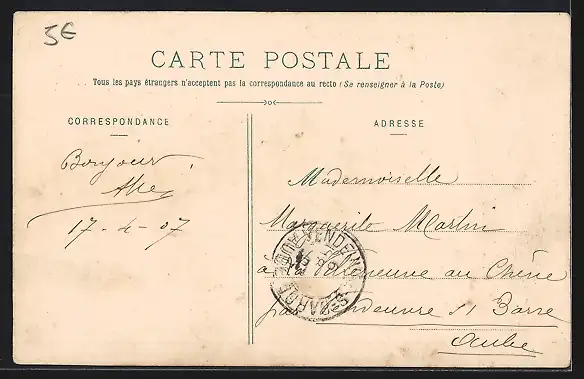 5€
CARTE POSTALE
Tous les pays étrangers n'acceptent pas la correspondance au recto (Se renseigner à la Poste)
CORRESPONDANCE
Bonjour
17-4-07
ADRESSE
Mademoiselle
Marguerite Martin
à Villeneuve au Chêne
par Vendeuvre s/ Barse
Aube